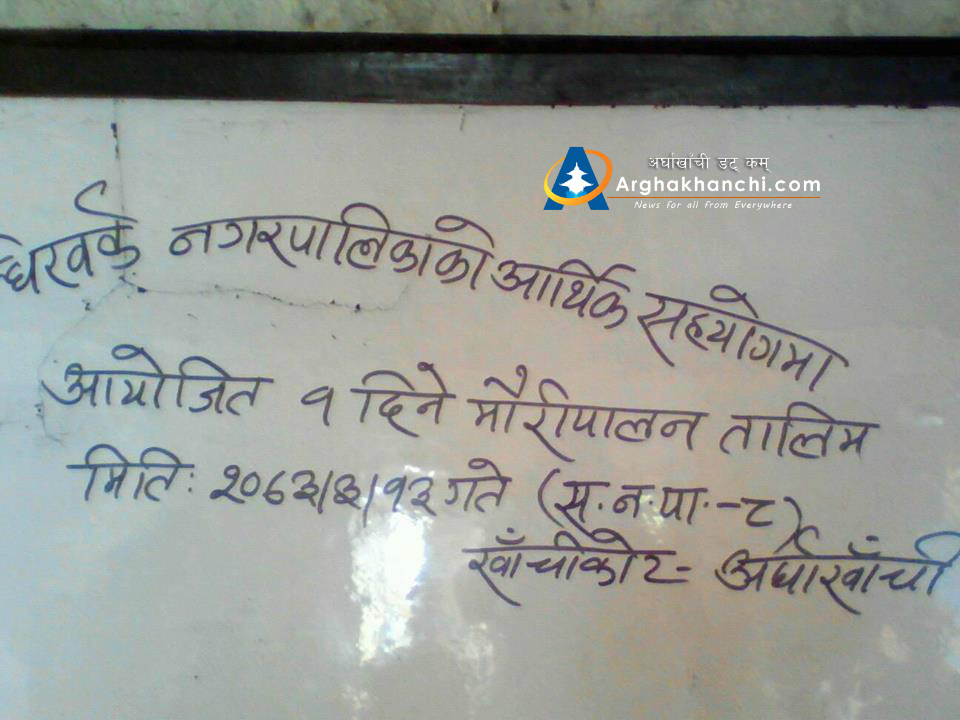 अर्घाखांची डट् कम्
Arghakhanchi.com
News for all from Everywhere
धिखर्क नगरपालिकाको आर्थिक सहयोगमा
आयोजित १ दिने मौरीपालन तालिम
मितिः २०७३।३।१३ गते (स.न.पा.-८)
खाँचीकोट- अर्घाखाँची